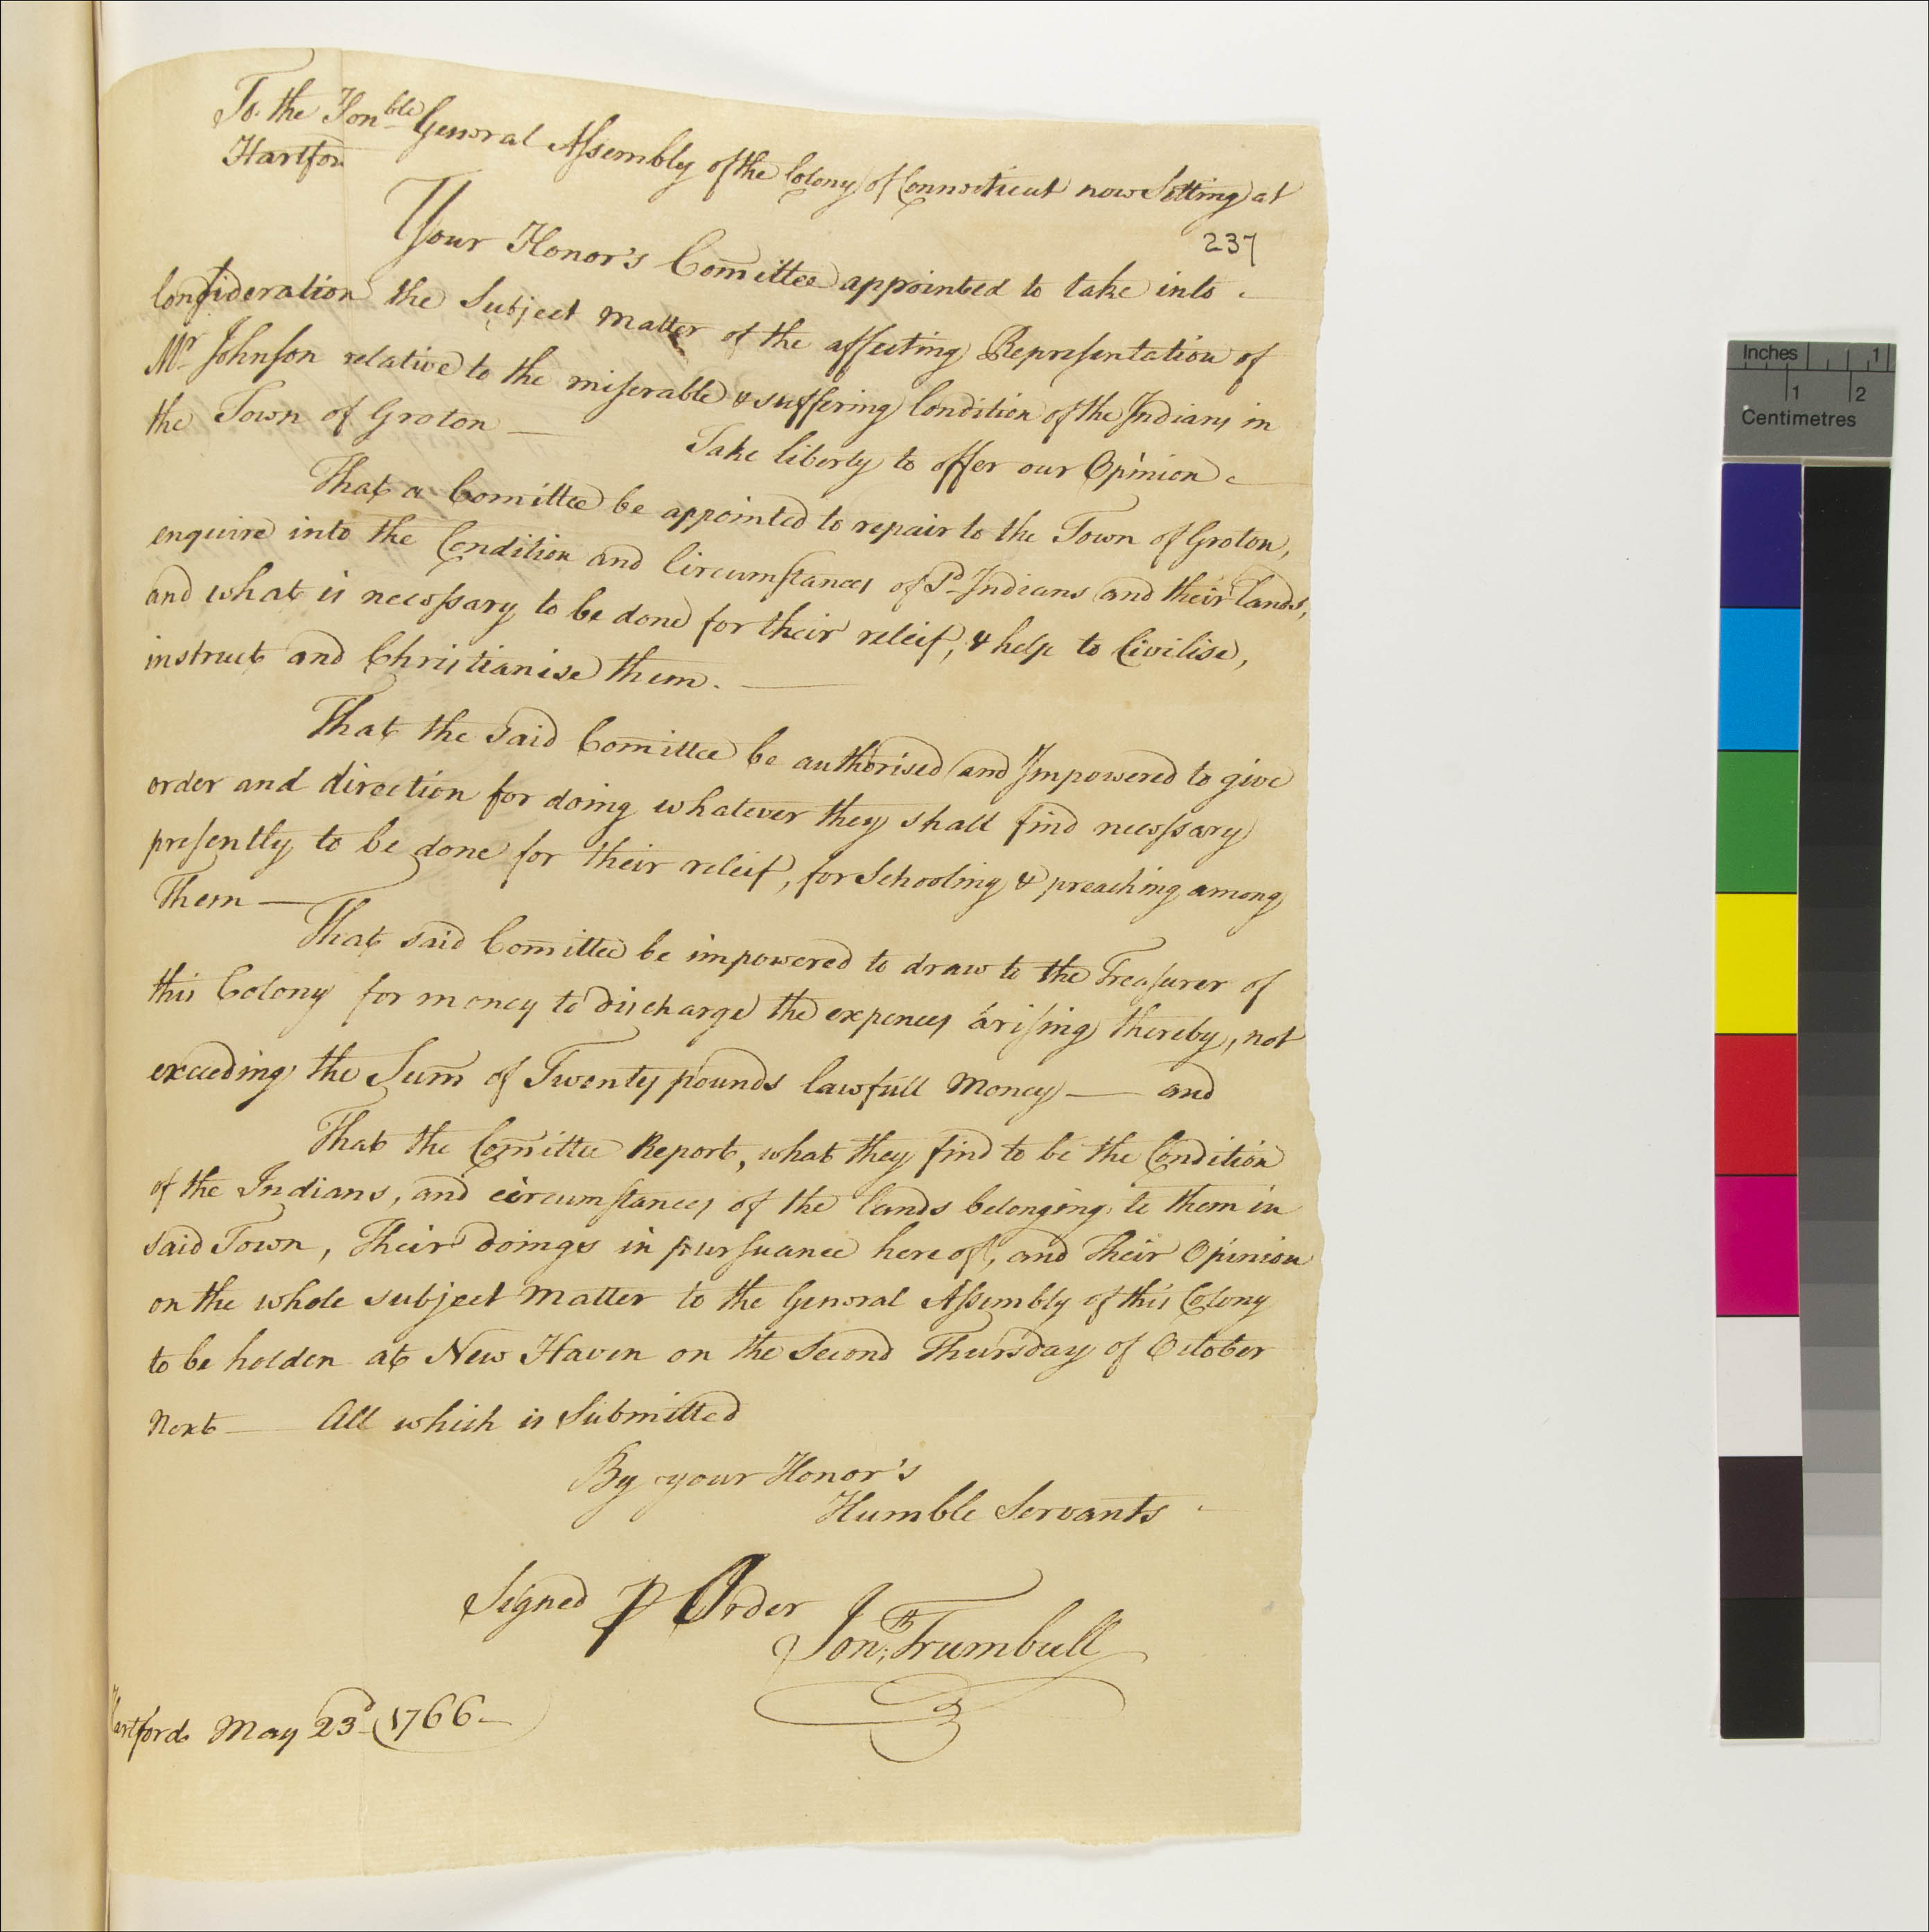 To the Hon^ble General Assembly of the Colony of Connecticut now Sitting at
Hartford
237
Your Honor's Comittee appointed to take into
Consideration the Subject Matter of the affecting Representation of
M^r Johnson relative to the miserable & suffering Condition of the Indians in
the Town of Groton —
Take liberty to offer our Opinion
That a Comittee be appointed to repair to the Town of Groton,
enquire into the Condition and Circumstances of s^d Indians and their Lands,
and what is necessary to be done for their releif, & help to Civilise,
instruct and Christianise them. —
That the said Comittee be authorised and Impowered to give
order and direction for doing whatever they shall find necessary
presently to be done for their releif, for Schooling & preaching among
Them —
That said Comittee be impowered to draw to the Treasurer of
this Colony for money to discharge the expences arising thereby, not
exceeding the Sum of Twenty pounds lawfull Money — and
That the Comittee Report, what they find to be the Condition
of the Indians, and circumstances of the lands belonging to them in
said Town, Their doings in pursuance hereof, and Their Opinion
on the whole subject Matter to the General Assembly of this Colony
to be holden at New Haven on the Second Thursday of October
Next — All which is Submitted
By your Honor's
Humble Servants
Signed P Order
Jon^th; Trumbull
Hartford May 23^d 1766 —
Inches 1
1 2
Centimetres